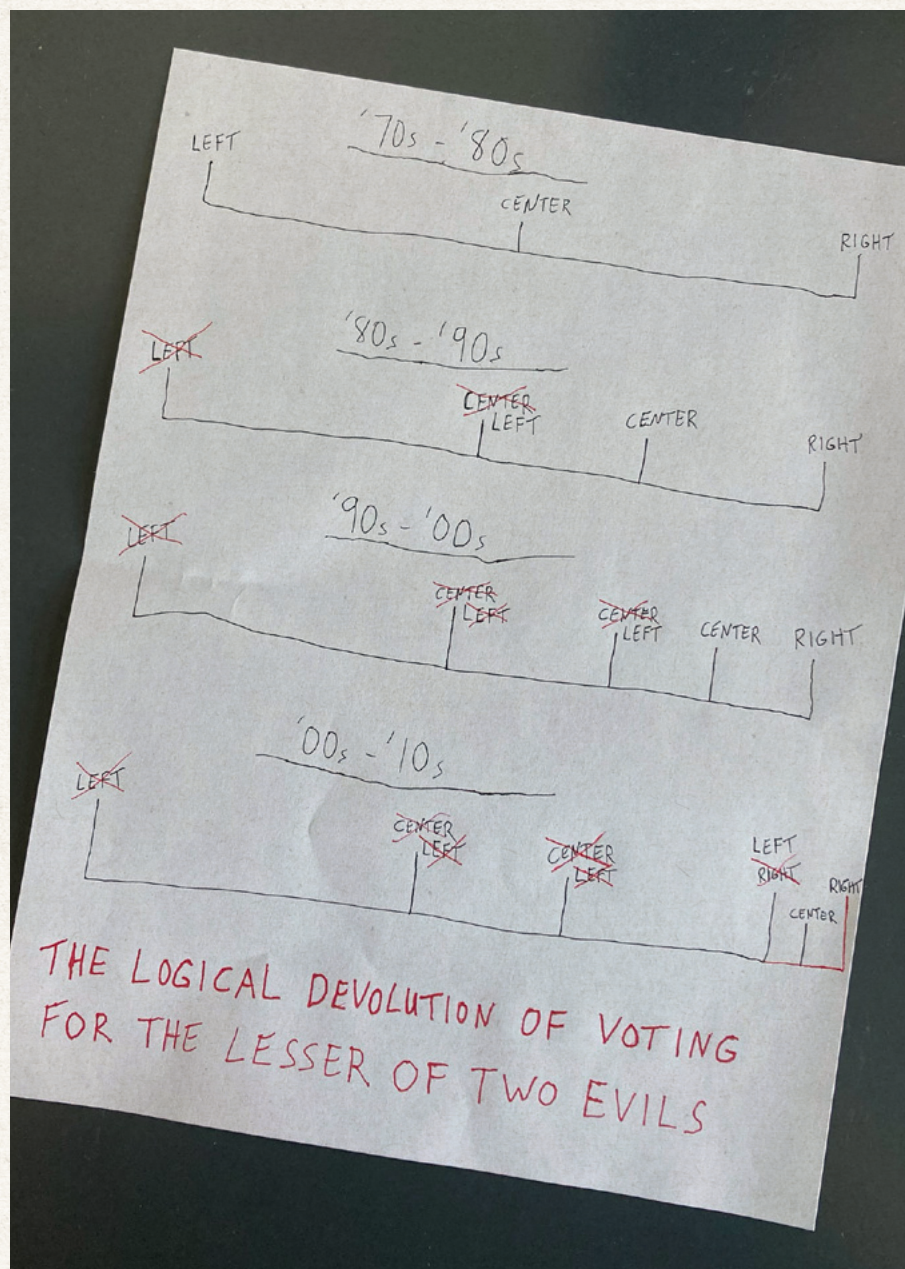 '70s - '80s
LEFT
CENTER
RIGHT
'80s - '90s
LEFT
CENTER
LEFT
CENTER
RIGHT
'90s - '00s
LEFT
CENTER
LEFT
CENTER
LEFT
CENTER
RIGHT
'00s - '10s
LEFT
CENTER
LEFT
CENTER
LEFT
LEFT
RIGHT
CENTER
RIGHT
THE LOGICAL DEVOLUTION OF VOTING
FOR THE LESSER OF TWO EVILS